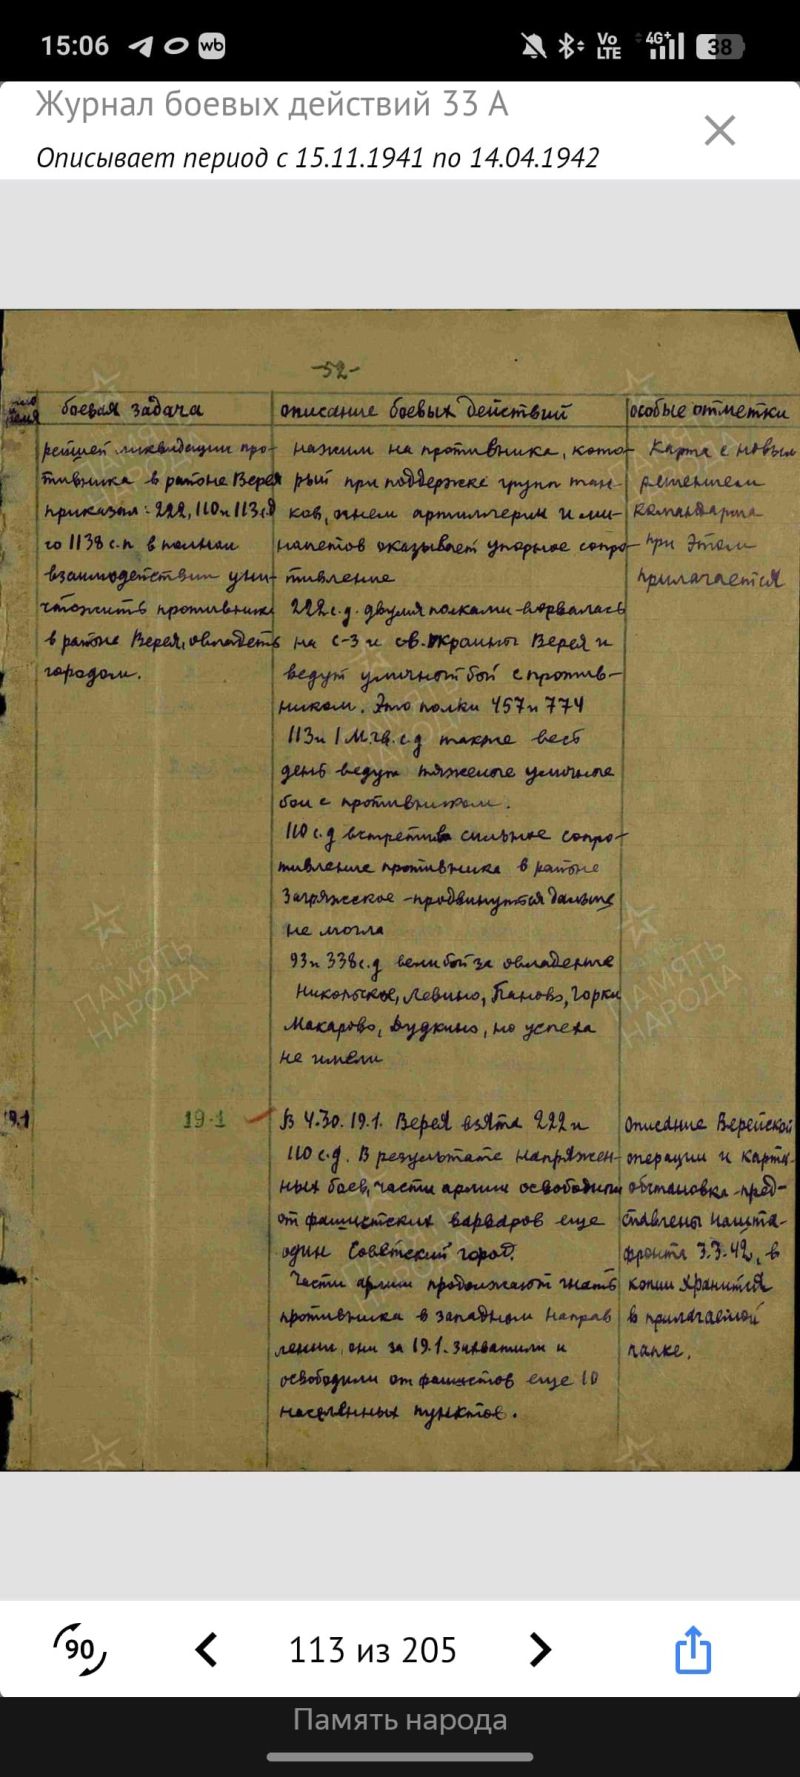 15:06
wb
Vo LTE
4G+
38
Журнал боевых действий 33 А
Описывает период с 15.11.1941 по 14.04.1942
-52-
боевая задача
описание боевых действий
особые отметки
ликвидации про-
тивника в районе Верея
приказал: 222, 110 и 113 с.д
1138 с.п. в полном
взаимодействии уни-
чтожить противника
в районе Верея, овладеть
городом.
нажим на противника, кото-
рый при поддержке групп тан-
ков, огнем артиллерии и ми-
нометов оказывает упорное сопро-
тивление
222 с.д. двумя полками ворвалась
на с-з и с-в. окраины Верея и
ведут уличный бой с против-
ником. Это полки 457 и 774
113 и 1 М.гв.с.д также весь
день ведут тяжелые уличные
бои с противником.
110 с.д встретив сильное сопро-
тивление противника в районе
Загряжское - продвинуться дальше
не могла
93 и 338 с.д вели бой за овладение
Никольское, Левино, Паново, Горки
Макарово, Дудкино, но успеха
не имели
Карта с новым
решением
командарма
при этом
прилагается
19.1
19.1
В 4.30. 19.1. Верея взята 222 и
110 с.д. В результате напряжен-
ных боев, части армии освободили
от фашистских варваров еще
один Советский город.
Части армии продолжают гнать
противника в западном направ
лении, они за 19.1. захватили и
освободили от фашистов еще 10
населенных пунктов.
Описание Верейской
операции и карта
обстановка пред-
ставлены наштa-
фронта 3.3.42, в
копии хранится
в прилагаемой
папке.
ПАМЯТЬ НАРОДА
ПАМЯТЬ НАРОДА
90
113 из 205
Память народа